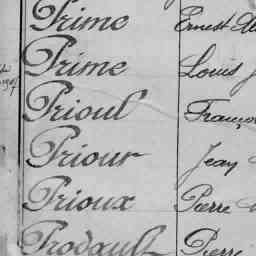 Prime Ernest
Prime Louis
Prioul François
Priour Jean
Prioux Pierre
Prodault Pierre